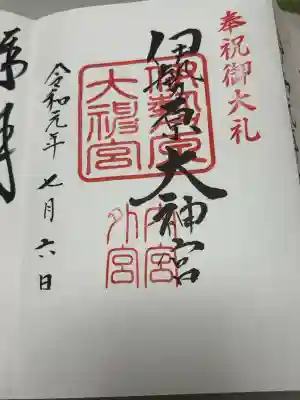 奉祝御大礼
伊勢原大神宮
伊勢原
大神宮
内宮
外宮
令和元年七月六日
拝